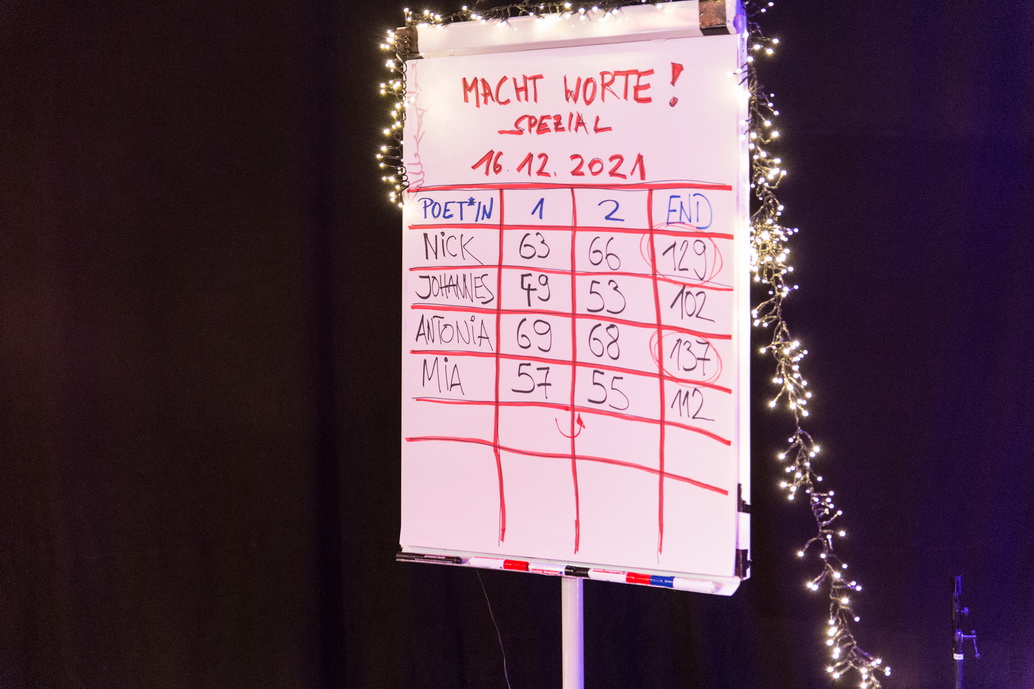 MACHT WORTE!
SPEZIAL
16.12.2021
POET*IN 1 2 END
NICK 63 66 129
JOHANNES 49 53 102
ANTONIA 69 68 137
MIA 57 55 112